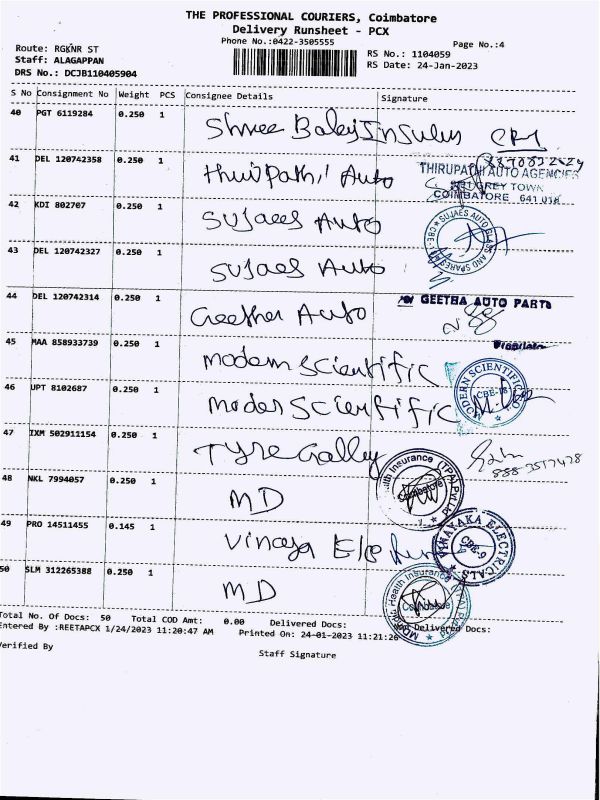 THE PROFESSIONAL COURIERS, Coimbatore
Delivery Runsheet - PCX
Phone No.:0422-3505555
Page No.:4
Route: RGKNR ST
RS No.: 1104059
Staff: ALAGAPPAN
RS Date: 24-Jan-2023
DRS No.: DCJB110405904
S No Consignment No Weight PCS Consignee Details Signature
40 PGT 6119284 0.250 1 Shree
41 DEL 120742358 0.250 1 Auto THIRUPATHI AUTO AGENCIES
GREY TOWN
COIMBATORE 641 018
42 KDI 802707 0.250 1 Sujaes Auto SUJAES AUTO AND SPARES CBE-
43 DEL 120742327 0.250 1 Sujaes Auto
44 DEL 120742314 0.250 1 Geetha Auto GEETHA AUTO PARTS
45 MAA 858933739 0.250 1 Modern Scientific
46 UPT 8102687 0.250 1 Scientific MODERN SCIENTIFIC CBE-18
47 IXM 502911154 0.250 1 Tyre
48 NKL 7994057 0.250 1 MD Health Insurance (TPA) Pvt Ltd Coimbatore
49 PRO 14511455 0.145 1 VINAYAKA ELECTRICALS CBE-9
50 SLM 312265388 0.250 1 MD Health Insurance (TPA) Coimbatore
Total No. Of Docs: 50 Total COD Amt: 0.00 Delivered Docs: Delivered Docs:
Entered By :REETAPCX 1/24/2023 11:20:47 AM Printed On: 24-01-2023 11:21:26
Verified By
Staff Signature